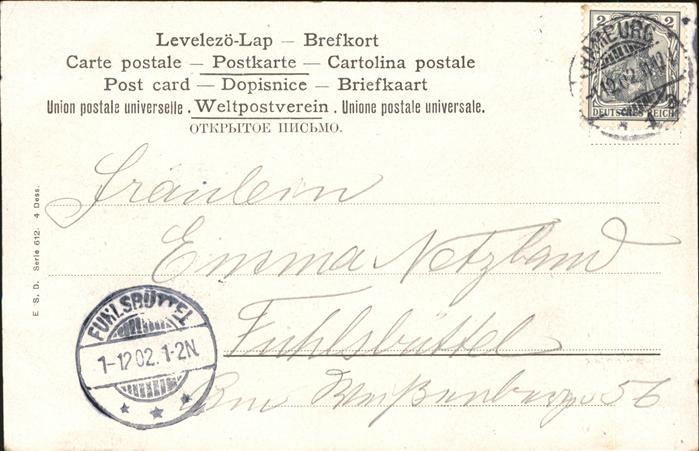 Levelezö-Lap — Brefkort
Carte postale — Postkarte — Cartolina postale
Post card — Dopisnice — Briefkaart
Union postale universelle . Weltpostverein . Unione postale universale.
ОТКРЫТОЕ ПИСЬМО.
2 2
DEUTSCHES REICH
HAMBURG
1.12.02.
1
Fräulein
Emma Netzband
Fuhlsbüttel
Am 56
FUHLSBÜTTEL
1-12 02. 1-2N.
E. S. D. Serie 612. 4 Dess.